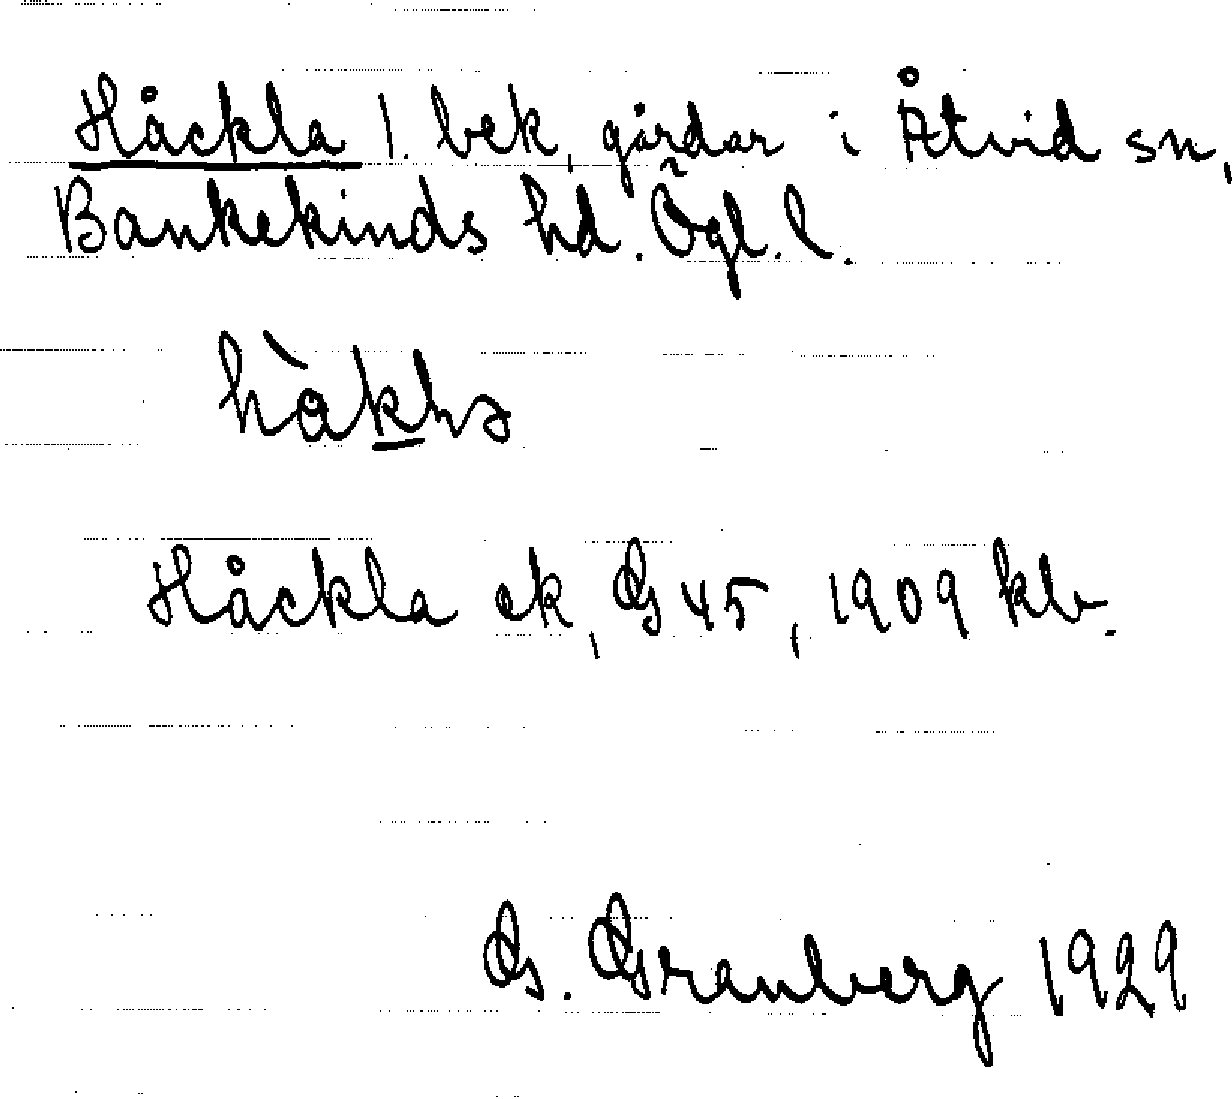 Håckla 1. bek, gårdar i Åtvid sn,
Bankekinds hd. Ögl. l.
Håckla ek, G 45, 1909 kb.
G. Granberg 1929